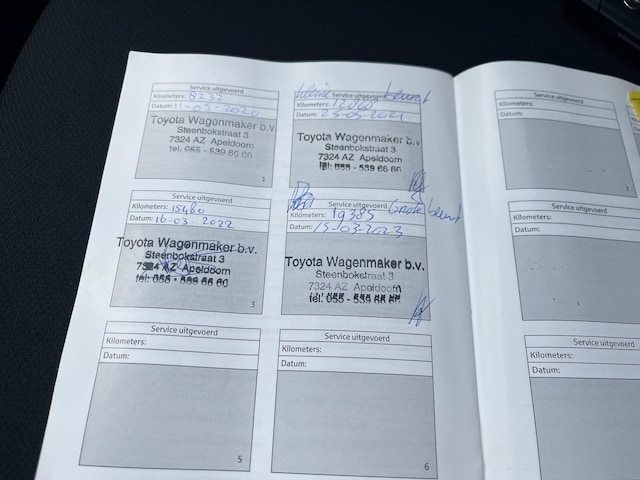 Service uitgevoerd
Kilometers: 8232
Datum: 11-03-2020
Toyota Wagenmaker b.v.
Steenbokstraat 3
7324 AZ Apeldoorn
tel: 055 - 539 66 66
1
Kleine beurt
Service uitgevoerd
Kilometers:
Datum: 25-05-2021
Toyota Wagenmaker b.v.
Steenbokstraat 3
7324 AZ Apeldoorn
tel: 055 - 539 66 66
Service uitgevoerd
Kilometers: 15480
Datum: 16-03-2022
Toyota Wagenmaker b.v.
Steenbokstraat 3
7324 AZ Apeldoorn
tel: 055 - 539 66 66
3
Service uitgevoerd
Kilometers: 19385 Grote beurt
Datum: 15-03-2023
Toyota Wagenmaker b.v.
Steenbokstraat 3
7324 AZ Apeldoorn
tel: 055 - 539 66 66
Service uitgevoerd
Kilometers:
Datum:
5
Service uitgevoerd
Kilometers:
Datum:
6
Service uitgevoerd
Kilometers:
Datum:
Service uitgevoerd
Kilometers:
Datum:
Service uitgevoerd
Kilometers:
Datum: